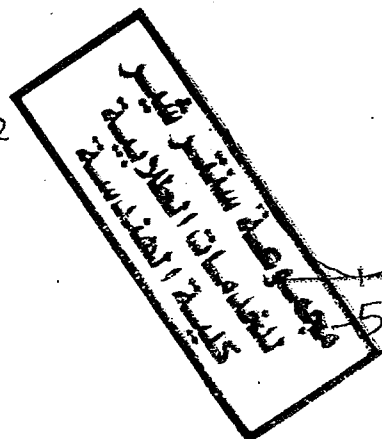 مجموعة سنتر شير
للخدمات الطلابية
كلية الهندسة
2
-5